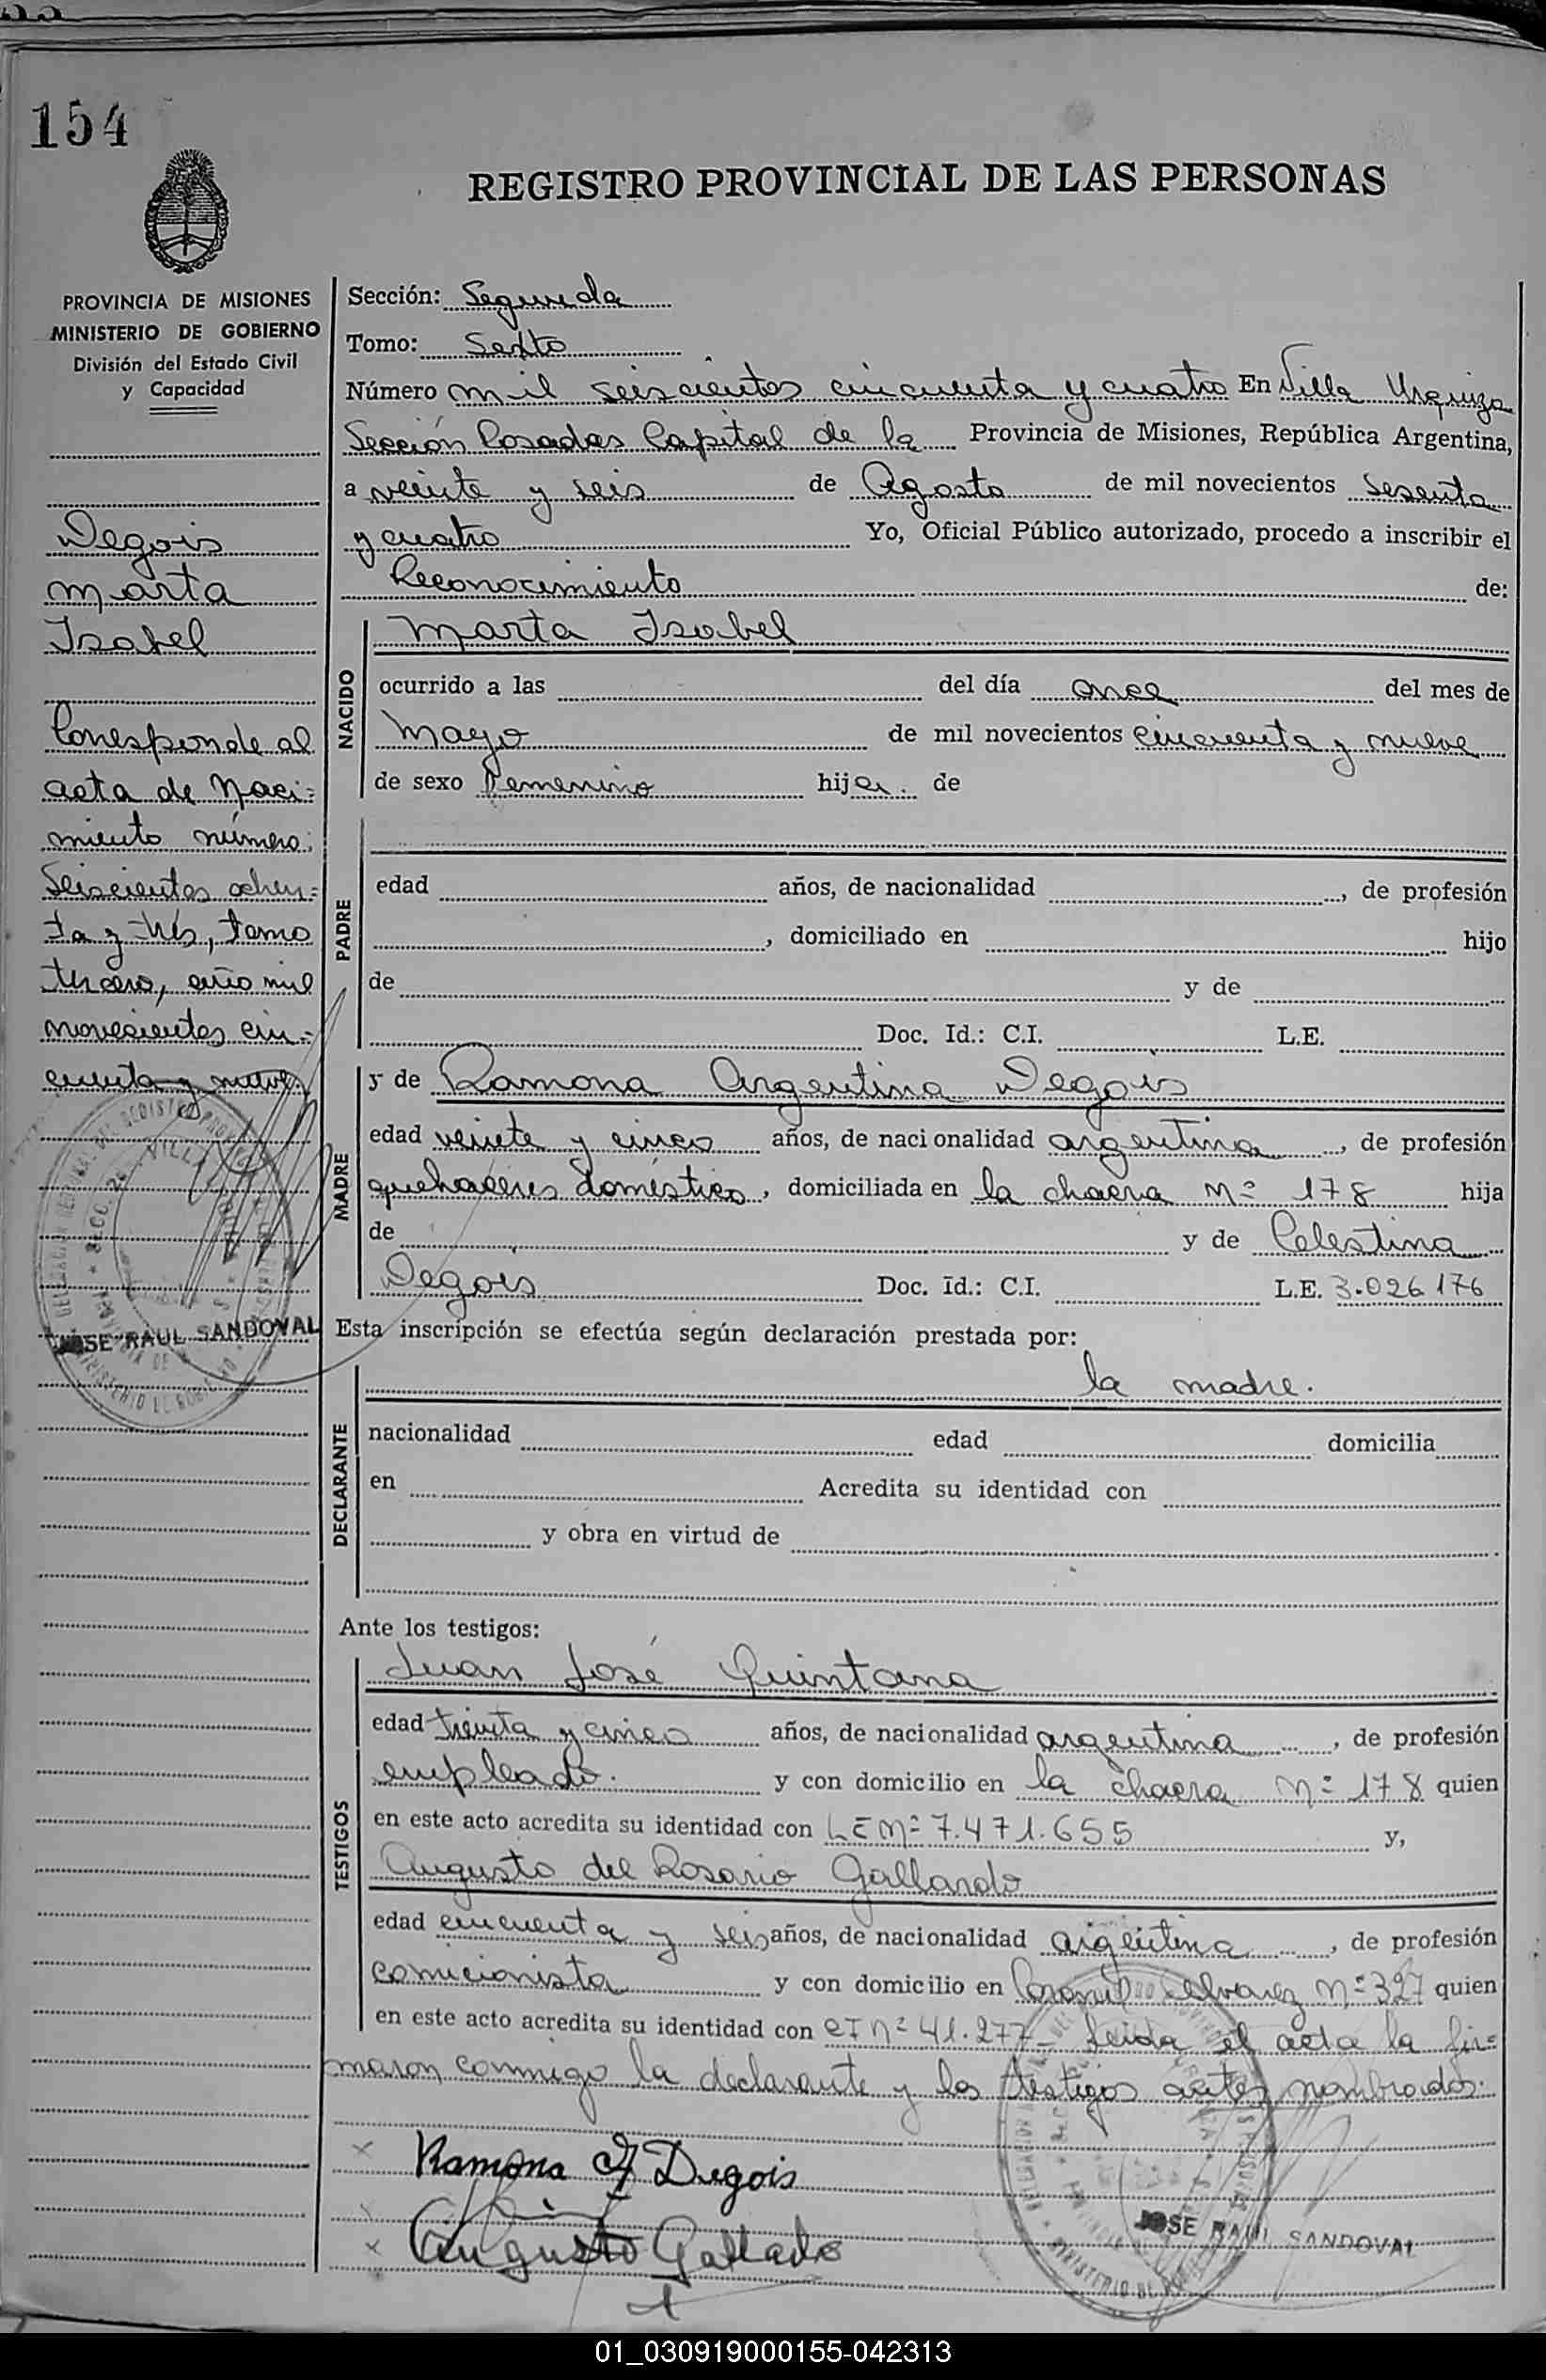 154
REGISTRO PROVINCIAL DE LAS PERSONAS
PROVINCIA DE MISIONES
MINISTERIO DE GOBIERNO
División del Estado Civil
y Capacidad
Degois
Marta
Isabel
Corresponde al
acta de Naci=
miento número:
Seiscientos ochen=
ta y trés, tomo
tercero, año mil
novecientos cin=
cuenta y nueve.
JOSE RAUL SANDOVAL
Sección: Segunda
Tomo: Sexto
Número mil seiscientos cincuenta y cuatro En Villa Urquiza
Sección Posadas Capital de la Provincia de Misiones, República Argentina,
a veinte y seis de Agosto de mil novecientos Sesenta
y cuatro Yo, Oficial Público autorizado, procedo a inscribir el
Reconocimiento de:
NACIDO
Marta Isabel
ocurrido a las del día once del mes de
Mayo de mil novecientos cincuenta y nueve
de sexo Femenino hija. de
PADRE
edad años, de nacionalidad , de profesión
, domiciliado en hijo
de y de
Doc. Id.: C.I. L.E.
MADRE
y de Ramona Argentina Degois
edad veinte y cinco años, de nacionalidad argentina , de profesión
quehaceres domésticos, domiciliada en la chacra Nº 178 hija
de y de Celestina
Degois Doc. Id.: C.I. L.E. 3.026.176
Esta inscripción se efectúa según declaración prestada por:
DECLARANTE
la madre.
nacionalidad edad domicilia
en Acredita su identidad con
y obra en virtud de
Ante los testigos:
TESTIGOS
Juan José Quintana
edad treinta y cinco años, de nacionalidad argentina , de profesión
empleado. y con domicilio en la chacra Nº 178 quien
en este acto acredita su identidad con L E Nº 7.471.655 y,
Augusto del Rosario Gallardo
edad cincuenta y seis años, de nacionalidad argentina , de profesión
comicionista y con domicilio en Coronel Alvarez Nº 327 quien
en este acto acredita su identidad con CI Nº 41.277- Leida el acta la fir=
maron conmigo la declarante y los testigos antes nombrados.
Ramona A Degois
Augusto Gallardo
JOSE RAUL SANDOVAL
01_030919000155-042313